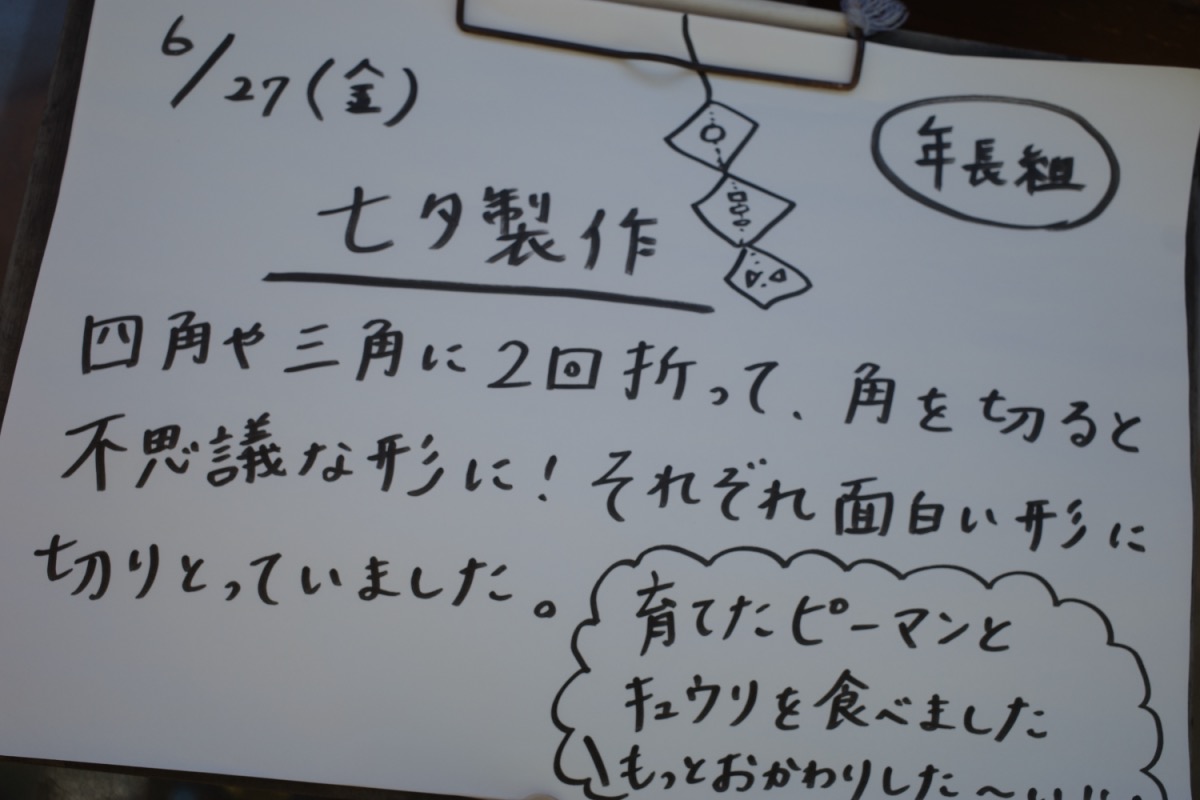 6/27(金)
年長組
七夕製作
四角や三角に2回折って、角を切ると
不思議な形に!それぞれ面白い形に
切りとっていました。
育てたピーマンと
キュウリを食べました
もっとおかわりした～い!!